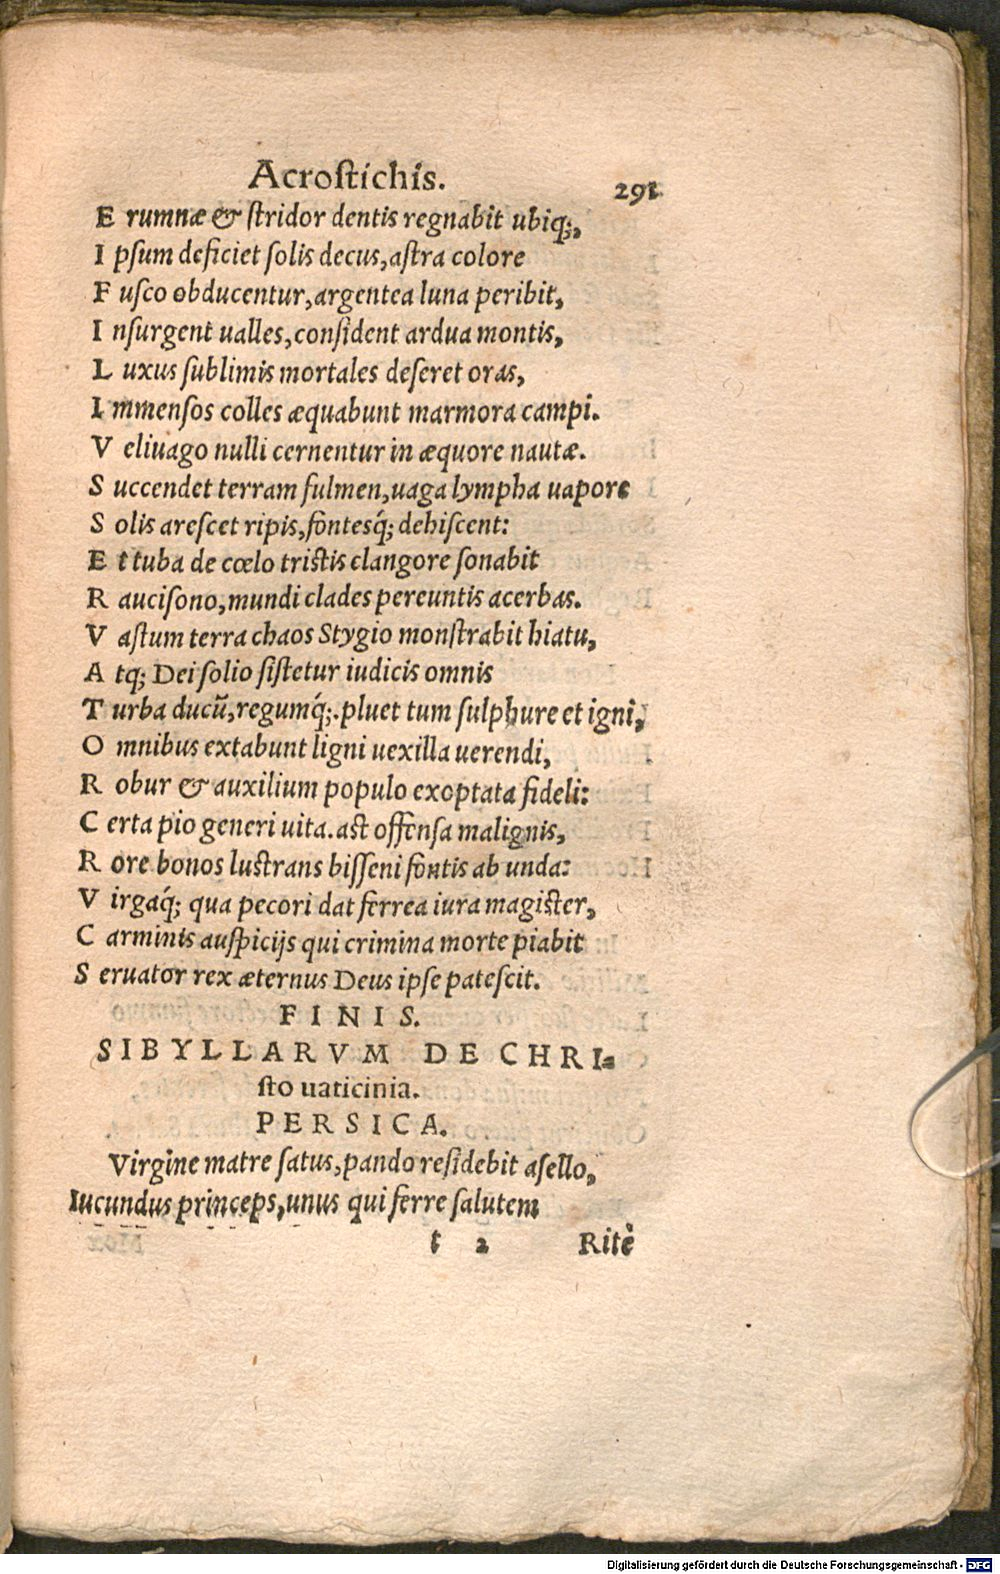 Acrostichis. 291
E rumnæ & stridor dentis regnabit ubiq;,
I psum deficiet solis decus, astra colore
F usco obducentur, argentea luna peribit,
I nsurgent ualles, consident ardua montis,
L uxus sublimis mortales deseret oras,
I mmensos colles æquabunt marmora campi.
V eliuago nulli cernentur in æquore nautæ.
S uccendet terram fulmen, uaga lympha uapore
S olis arescet ripis, fontesq́; dehiscent:
E t tuba de cœlo tristis clangore sonabit
R aucisono, mundi clades pereuntis acerbas.
V astum terra chaos Stygio monstrabit hiatu,
A tq; Dei solio sistetur iudicis omnis
T urba ducũ, regumq́;. pluet tum sulphure et igni,
O mnibus extabunt ligni uexilla uerendi,
R obur & auxilium populo exoptata fideli:
C erta pio generi uita. ast offensa malignis,
R ore bonos lustrans bisseni fontis ab unda:
V irgaq́; qua pecori dat ferrea iura magister,
C arminis auspicijs qui crimina morte piabit
S eruator rex æternus Deus ipse patescit.
FINIS.
SIBYLLARVM DE CHRI=
sto uaticinia.
PERSICA.
Virgine matre satus, pando residebit asello,
Iucundus princeps, unus qui ferre salutem
t 2 Ritè
Digitalisierung gefördert durch die Deutsche Forschungsgemeinschaft - DFG